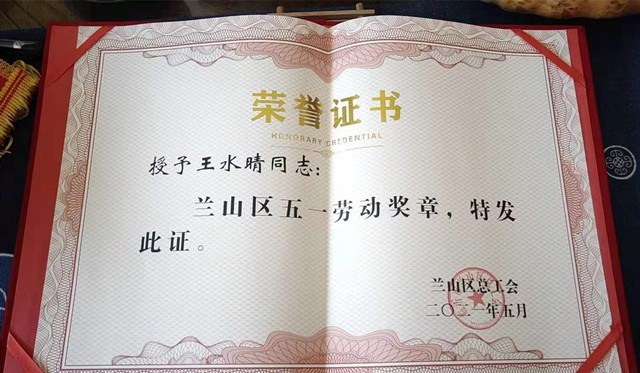 荣誉证书
HONORARY CREDENTIAL
授予王水晴同志：
兰山区五一劳动奖章，特发
此证。
兰山区总工会
二〇二一年五月